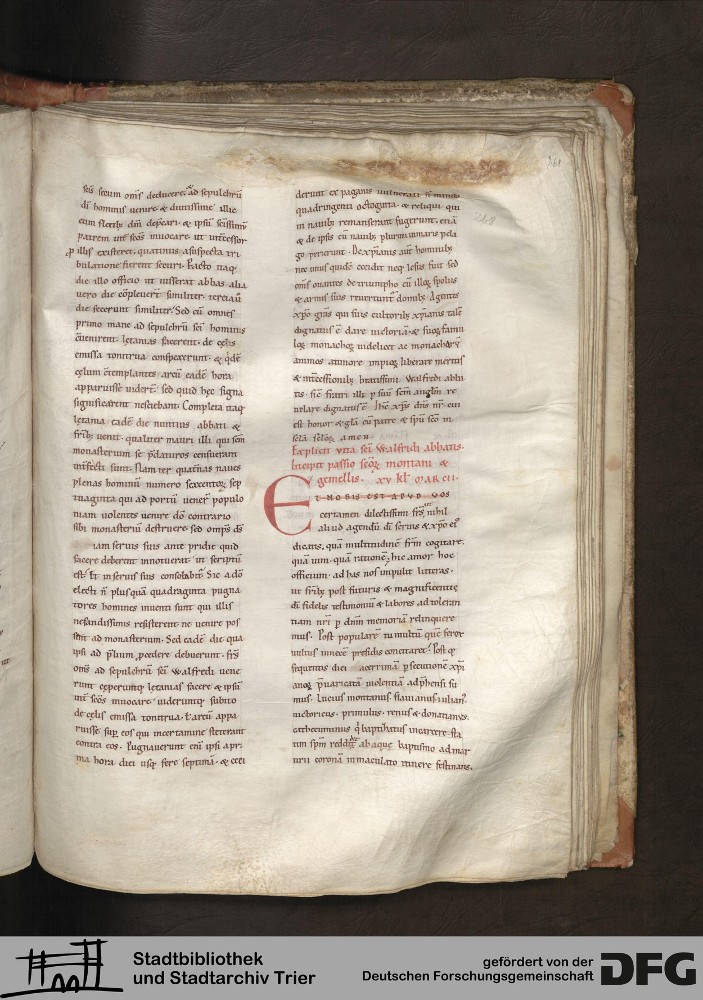 scōs secum om̄s deducere; ad sepulchrū
dī hominis uenire & deuotissime illic
cum fletib; dm̄ dep̄cari. & ipsū scīssimū
patrem ut̄ scōs inuocare ut int̄cessor
p̄ illis existeret. quatinus a suspecta tri
bulatione fierent securi. Facto naq;
die illo officio ut iusserat abbas alia
uero die cōpleuert̄ similiter. terciaū
die fecerunt similiter. Sed cū omnes
primo mane ad sepulchrū scī hominis
c̄uenirent. letanias facerent. de cęlis
emissa tonitrua conspexerunt. & q̄dē
cęlum c̄templantes arcū eadē hora
apparuisse uidert̄. sed quid hęc signa
significarent nesciebant. Completa itaq;
letania eadē die nuntius abbati &
frib; uenit. qualiter mauri illi qui scm̄
monasterium se p̄daturos censuerant
infesti sunt. Nam ter quat̄nas naues
plenas hominū numero sexcentor̄ sep
tuaginta qui ad portū uener̄ populo
nam uolentes uenire dō contrario
sibi monasteriū destruere sed omp̄s ds̄
iam seruis suis ante pridie quid
facere deberent innotuerat ut scriptū
est. Et in seruis suis consolabit̄. Sic a dō
electi n̄ plusquā quadraginta pugna
tores homines inuenti sunt qui illis
nefandissimis resisterent ne uenire pos
sent ad monasterium. Sed eadē die qua
ipsi ad p̄lium p̄cedere debuerunt. frs̄
om̄s ad sepulchrū scī Walfredi uene
runt ceperuntq; letanias facere & ipsū
int̄ scōs inuocare. uideruntq; subito
de cęlis emissa tonitrua. & arcū appa
ruisse sup̄ eos qui in certamine steterant
contra eos. Pugnauerunt eni ipsi a pri
ma hora diei usq; fere septimā. & ceci
derunt ex paganis uulnerati st̄ manib;
quadringenti octoginta. & reliqui qui
in nauib; remanserant fugerunt. etiā
& de ipsis cū nauib; plurimi in maris pela
go perierunt. De xp̄ianis aut̄ hominib;
nec unus quidē cecidit neq; lesus fuit sed
om̄s ouantes de triumpho cū illoȝ spoliis
& armis suis reuertunt̄ domib; Agentes
xp̄o grās qui suis cultorib; xp̄ianis talē
dignatus ē dare uictoriā. & suoȝ famu
loȝ monachoȝ uidelicet ac monachaȝ
animos a timore impioȝ liberare meritis
& int̄cessionib; beatissimi Walfredi abba
tis. sic fratri illi p̄ suū scm̄ anglm̄ re
uelare dignatus ē. Ihc̄ xp̄s dn̄s nr̄ cui
est honor & glā cū patre & spū scō in
scla sclor̄. amen
Explicit uita scī Walfridi abbatis.
Incipit passio scōȝ montani &
gemellis. xv kl̄ MARCII.
ET NOBIS EST APUD UOS
certamen dilectissimi frs̄. nihil
aliud agendū dī seruis & xp̄o ei'
dicatis. quā multitudinē frm̄ cogitare.
quā uim. quā rationē; hic amor hoc
officium. ad has nos impulit litteras.
ut frib; post futuris & magnificentię
dī fidelis testimoniū & labores ad toleran
tiam nr̄i p̄ dn̄m memoriā relinquere
mus. Post popularē tumultū quē ferox
uultus in necē presidis concitaret. Post q;
sequentis diei acerrimā p̄secutionē xp̄i
anoȝ p̄uaricatā uiolentiā adp̄hensi su
mus. Lucius montanus. flauianus. iulian'.
uictoricus. primulus. renus & donatianus.
catheciminus q̄ baptizatus in carcere sta
tim spm̄ reddid̄. ab aquę baptismo ad mar
tirii coronā inmaculato itinere festinans.
268
Stadtbibliothek
und Stadtarchiv Trier
gefördert von der
Deutschen Forschungsgemeinschaft
DFG